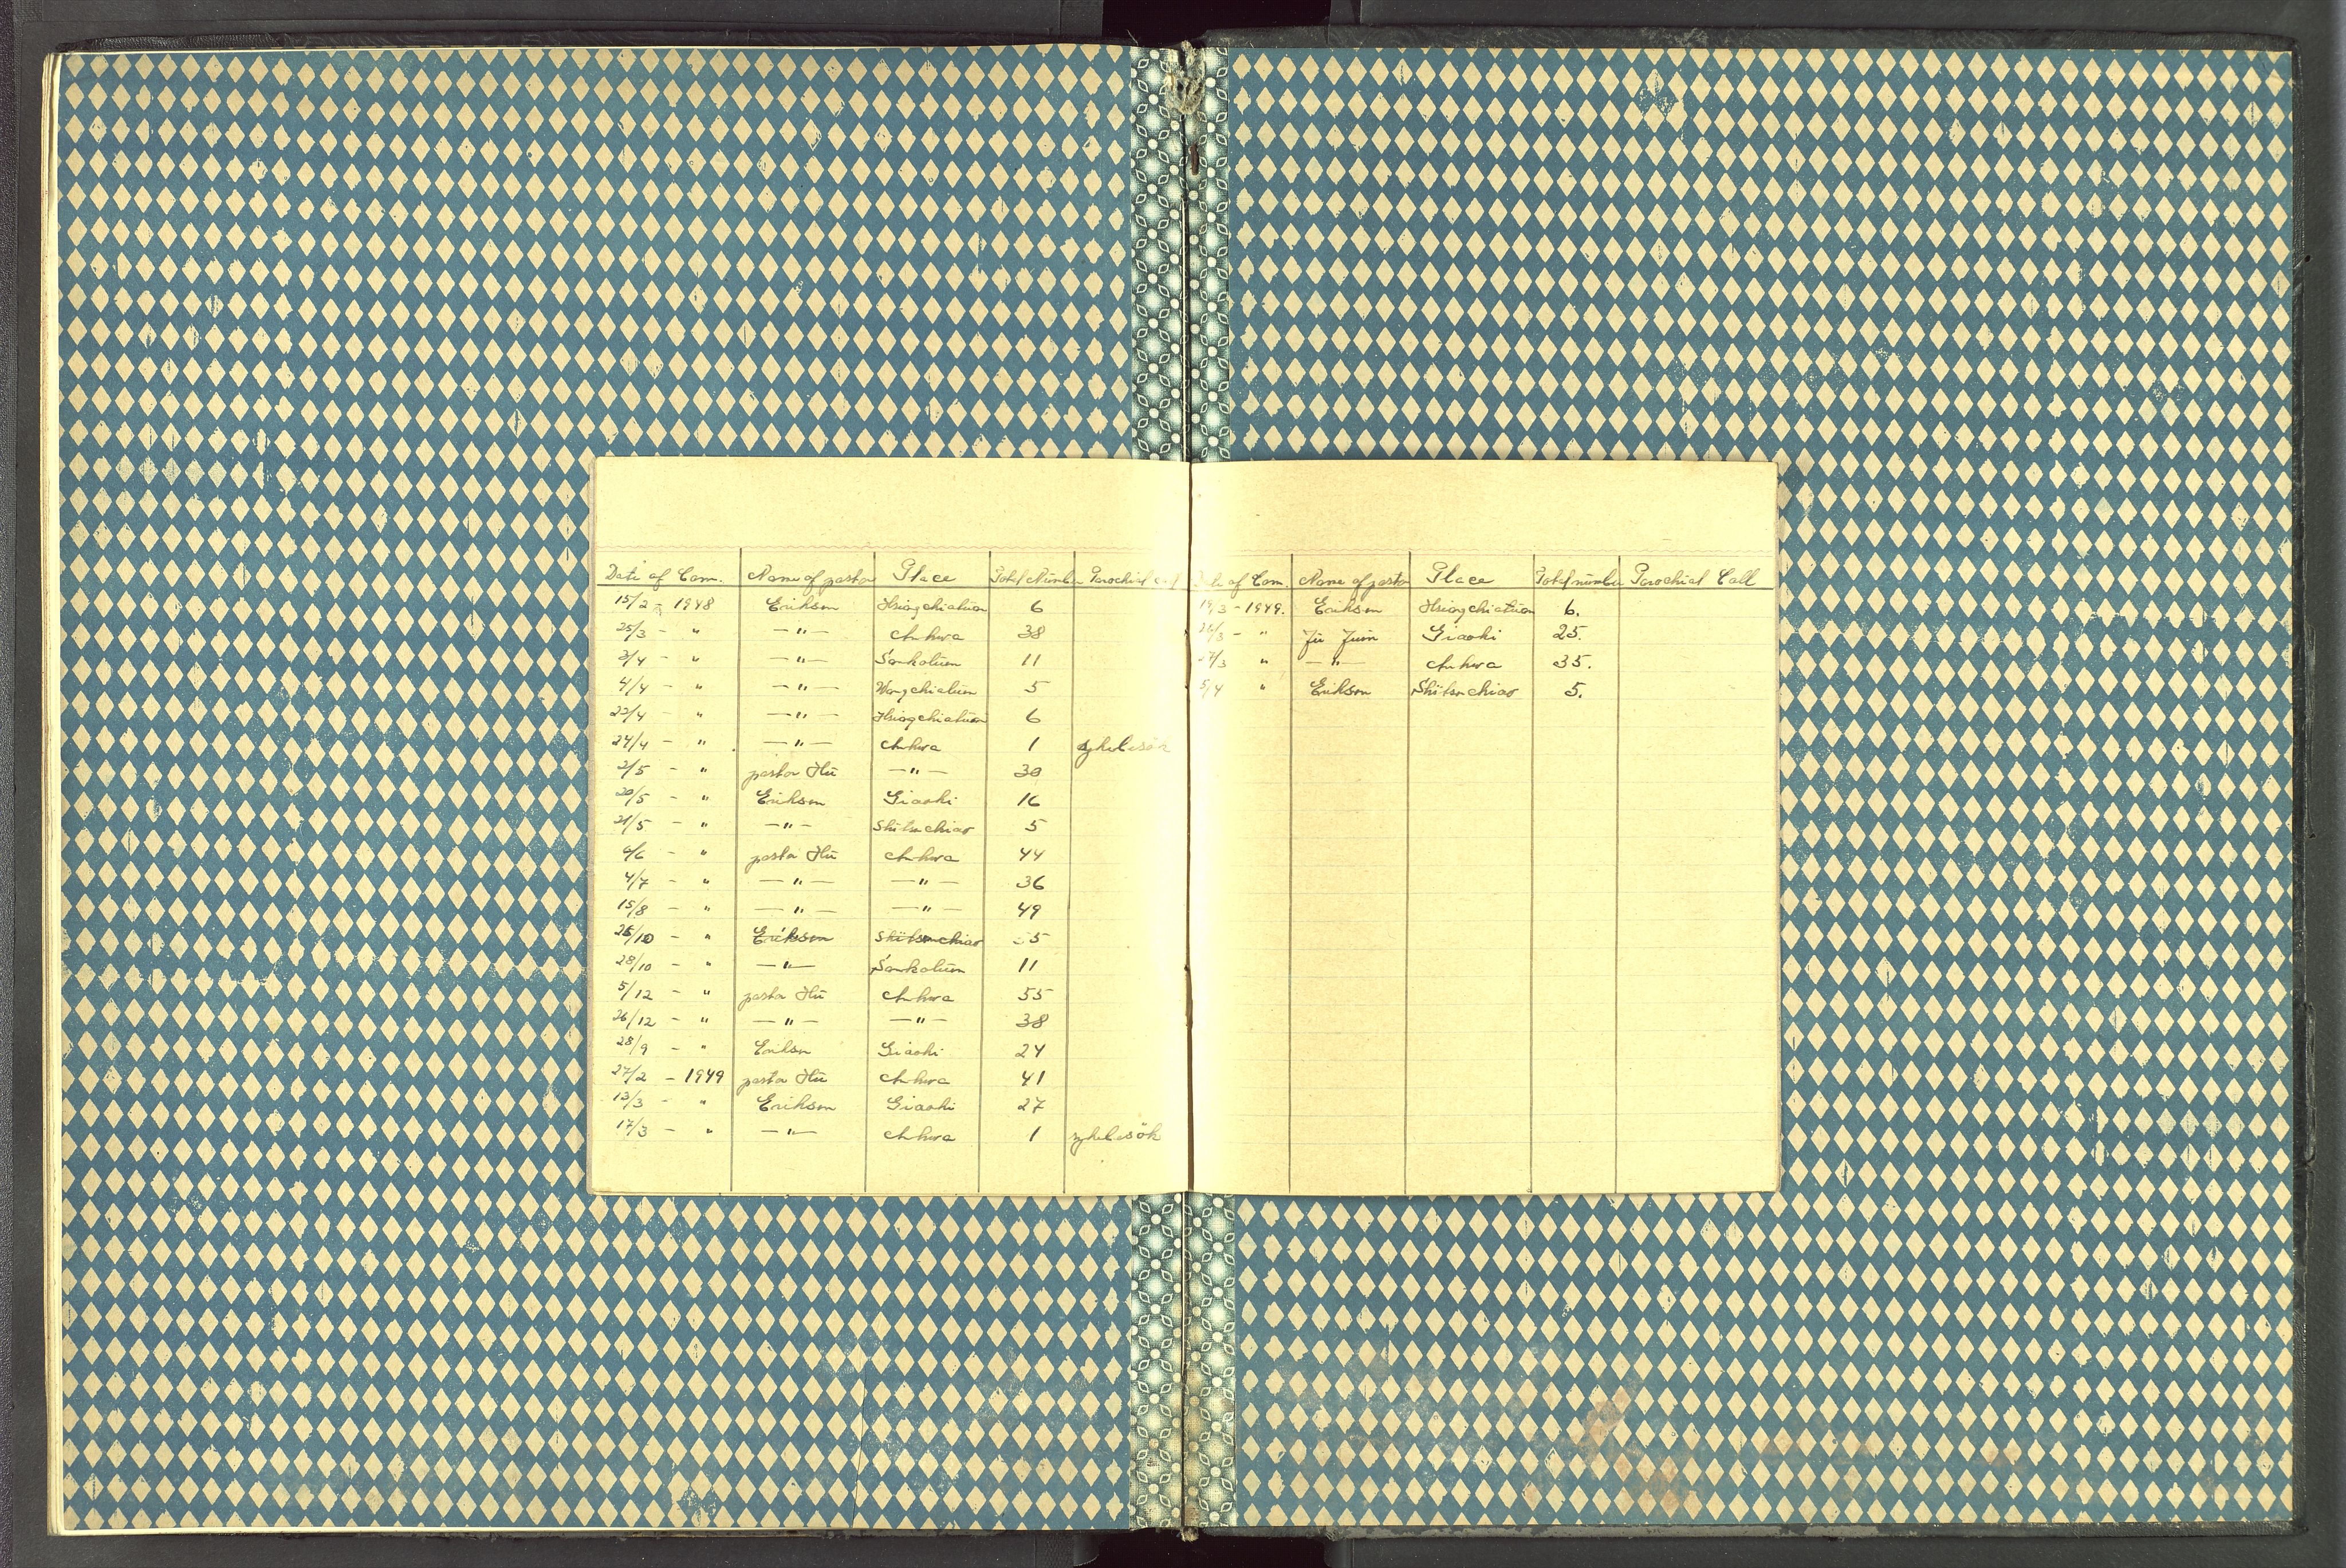 Date of Com. Name of pastor Place Total Number Parochial call
15/2 - 1948 Erikson Hsiangchiatüan 6
25/3 - " — " — Chuhwa 38
3/4 - " — " — Sankotüen 11
4/4 - " — " — Wangchiatüen 5
23/4 - " — " — Hsiangchiatüan 6
24/4 - " — " — Chuhwa 1 sykebesøk
2/5 - " pastor Hü — " — 30
20/5 - " Erikson Giaoki 16
21/5 - " — " — Shïtsuchiao 5
6/6 - " pastor Hü Chuhwa 44
4/7 - " — " — — " — 36
15/8 - " — " — — " — 49
26/10 - " Erikson Shïtsuchiao 5
28/10 - " — " — Sankotüen 11
5/12 - " pastor Hü Chuhwa 55
26/12 - " — " — — " — 38
28/9 - " Erikson Giaoki 24
27/2 - 1949 pastor Hü Chuhwa 41
13/3 - " Erikson Giaoki 27
17/3 - " — " — Chuhwa 1 sykebesök
Date of Com. Name of pastor Place Total number Parochial Call
19/3 - 1949. Erikson Hsiangchiatüan 6.
26/3 - " Giaoki 25.
27/3 " — " — Chuhwa 35.
5/4 " Erikson Shïtsuchiao 5.